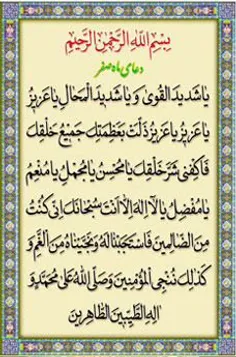 بِسْمِ اللهِ الرَّحْمٰنِ الرَّحِيْمِ
دعای ماه صفر
يا شَديدَ الْقُوىٰ وَ يا شَديدَ الْمِحالِ يا عَزيزُ
يا عَزيزُ يا عَزيزُ ذَلَّتْ بِعَظَمَتِكَ جَميعُ خَلْقِكَ
فَاكْفِنى شَرَّ خَلْقِكَ يا مُحْسِنُ يا مُجْمِلُ يا مُنْعِمُ
يا مُفْضِلُ يا لا اِلٰهَ اِلاّ اَنْتَ سُبْحانَكَ اِنّى كُنْتُ
مِنَ الظّالِمينَ فَاسْتَجَبْنا لَهُ وَ نَجَّيْناهُ مِنَ الْغَمِّ وَ
كَذٰلِكَ نُنْجِى الْمُؤْمِنينَ وَ صَلَّى اللهُ عَلىٰ مُحَمَّدٍ وَ
الِهِ الطَّيِّبينَ الطّاهِرينَ